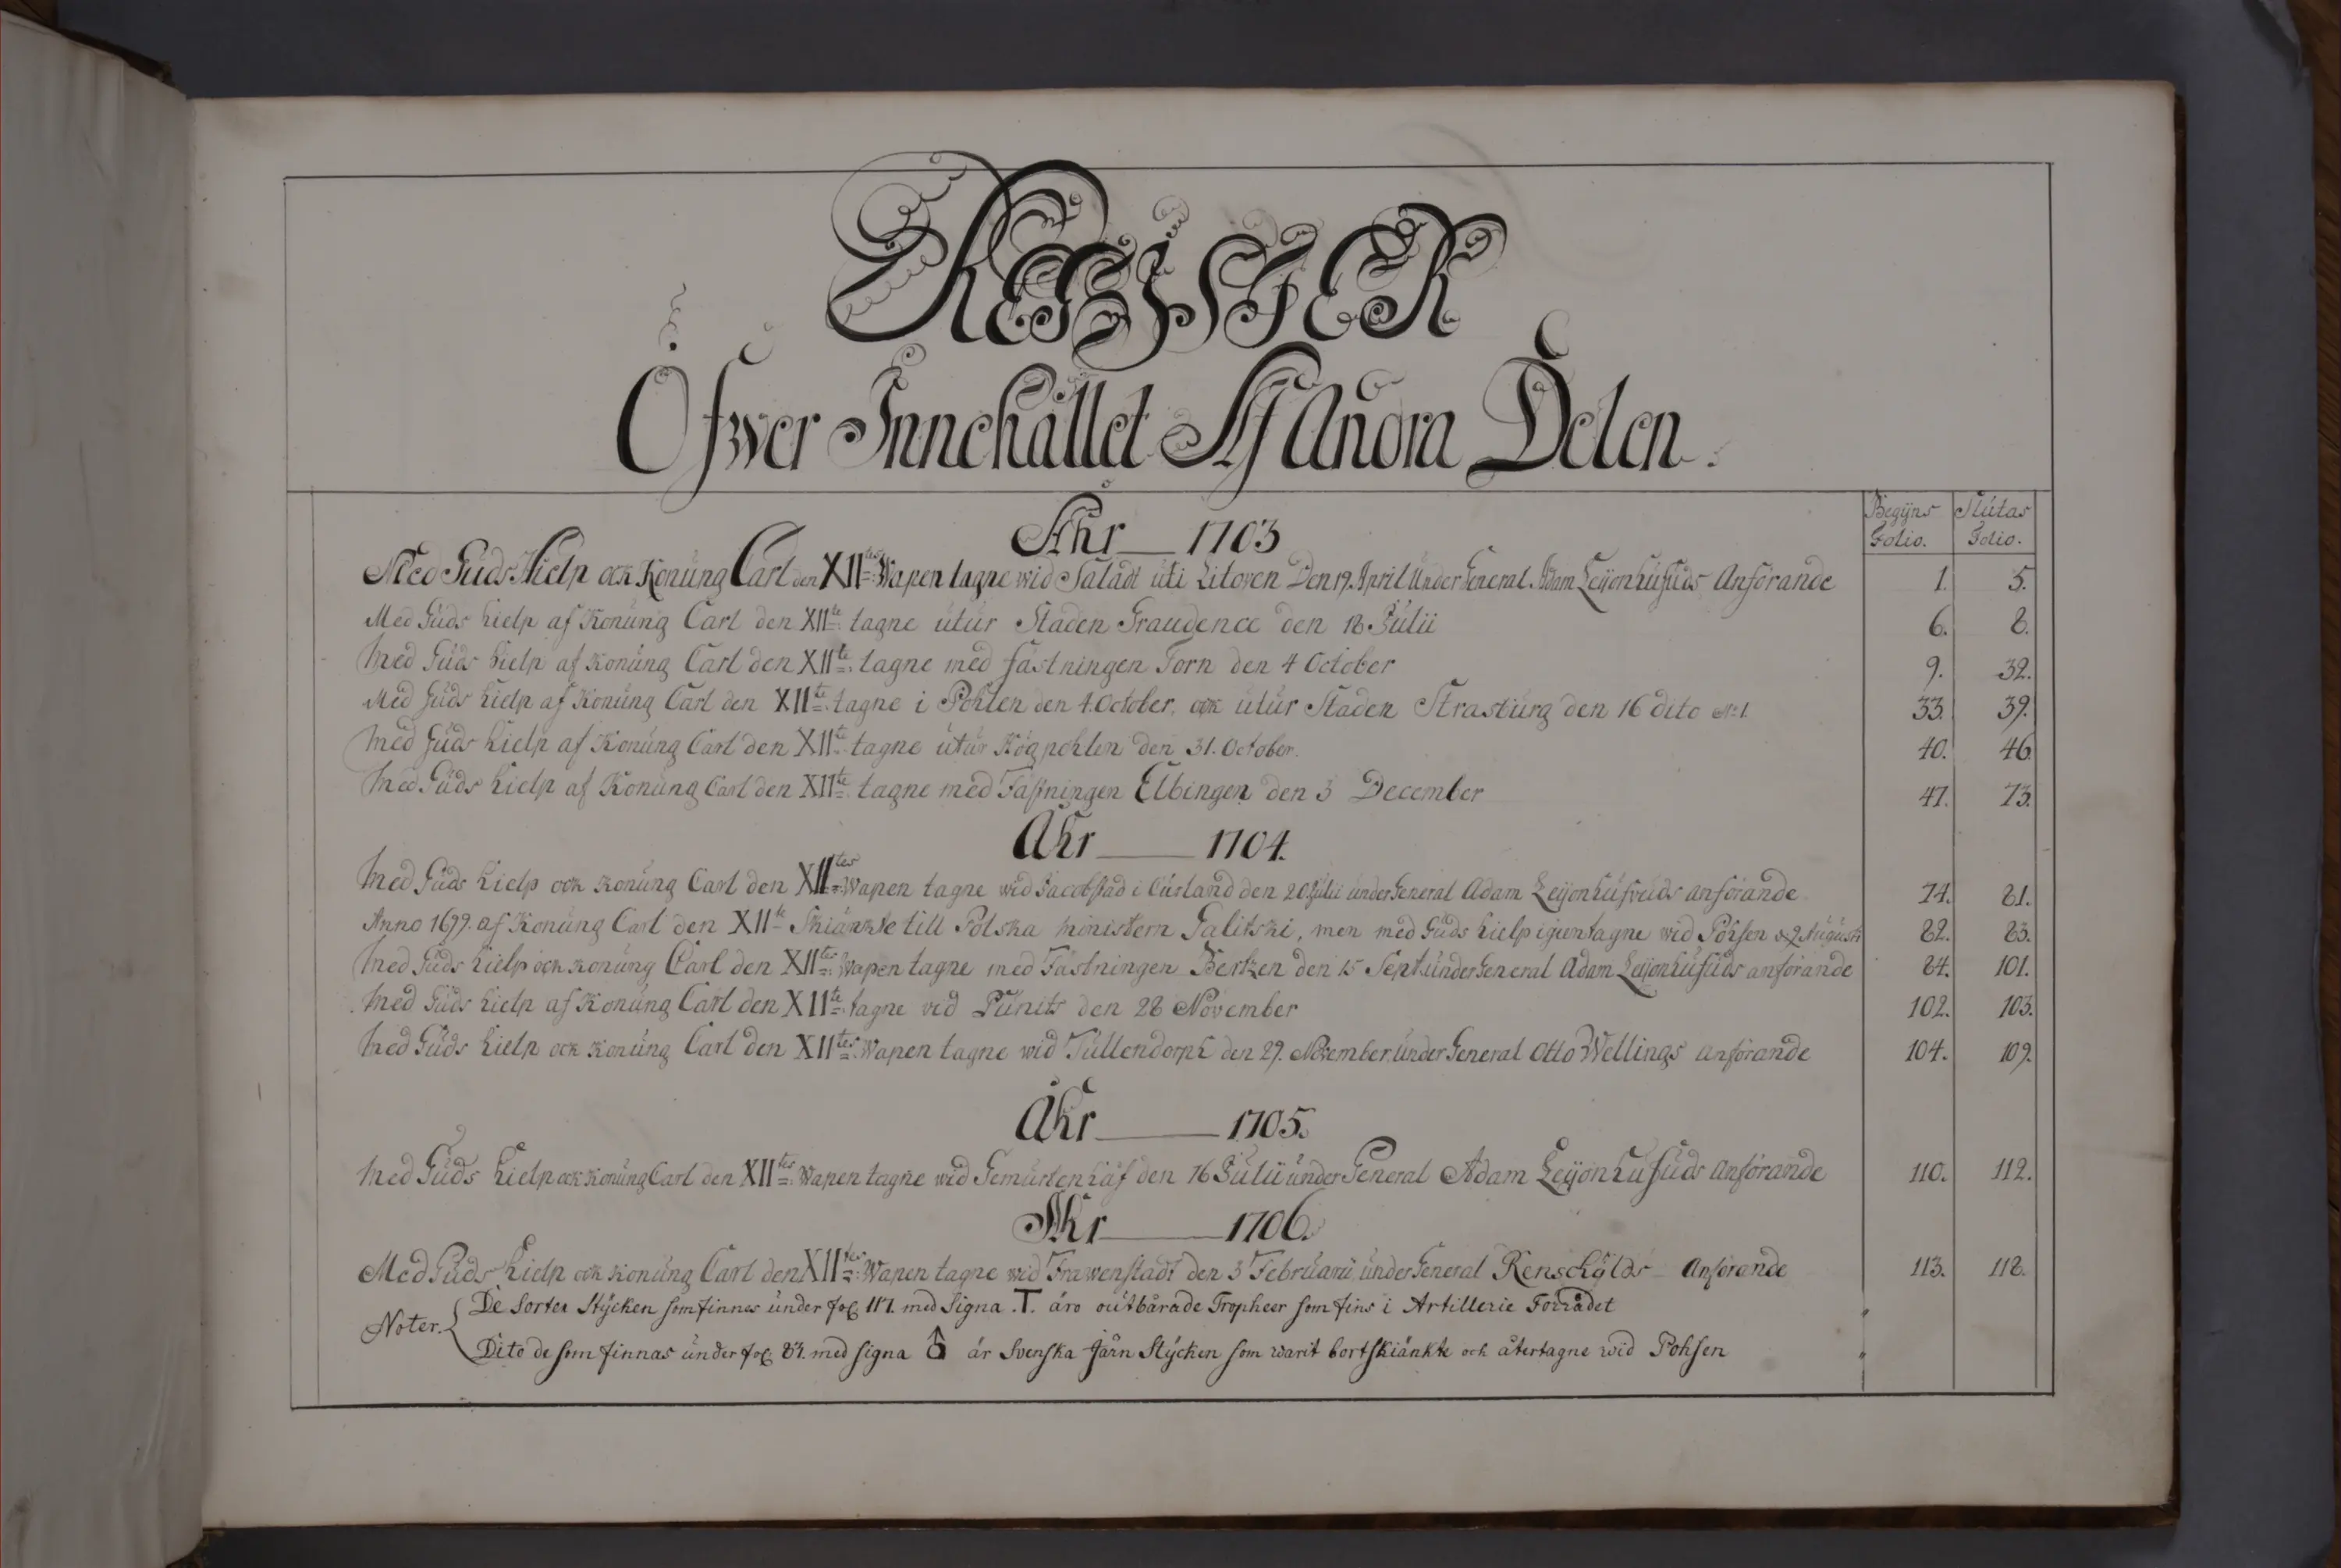 REGISTER
Öfwer Innehållet Af Andra Delen.
Begÿns Folio. Slutas Folio.
Åhr 1703
Med Guds Hielp och Konung Carl den XIItes Wapen tagne wid Saladt uti Litoven Den 19. April Under General Adam Leijonhufuds Anförande 1. 5.
Med Guds hielp af Konung Carl den XIIte tagne utur Staden Graudence den 18 Julii 6. 8.
Med Guds hielp af Konung Carl den XIIte tagne med fästningen Torn den 4 October 9. 32.
Med Guds hielp af Konung Carl den XIIte tagne i Pohlen den 4. October, och utur Staden Strasburg den 16 dito N:1. 33. 39.
Med Guds hielp af Konung Carl den XIIte tagne utur Högpohlen den 31. October. 40. 46.
Med Guds hielp af Konung Carl den XIIte tagne med Fästningen Elbingen den 3 December 47. 73.
Åhr 1704.
Med Guds hielp och Konung Carl den XIItes Wapen tagne wid Jacobstad i Curland den 26 Julii under General Adam Leijonhufvuds anförande 74. 81.
Anno 1699. af Konung Carl den XIIte Skiänkte till Polska ministern Galitski, men med Guds hielp igientagne wid Pohsen d. 9 Augusti 82. 83.
Med Guds hielp och Konung Carl den XIItes Wapen tagne med Fästningen Bertzen den 15 Sept. under General Adam Leijonhufuds anförande 84. 101.
Med Guds hielp af Konung Carl den XIIte tagne vid Punits den 28 November 102. 103.
Med Guds hielp och Konung Carl den XIItes Wapen tagne wid Tillendorph den 29. November under General Otto Wellings anförande 104. 109.
Åhr 1705.
Med Guds hielp och Konung Carl den XIItes Wapen tagne wid Gemurtenhäf den 16 Julii under General Adam Leijonhufuds Anförande 110. 112.
Åhr 1706.
Med Guds hielp och Konung Carl den XIItes Wapen tagne wid Frawenstadt den 3 Februarii under General Renschölds Anförande 113. 118.
Noter. De Sorter Stÿcken som finnes under fol. 117. med Signa .T. äro outbårade Tropheer som fins i Artillerie Förrådet
Dito de som finnas under fol: 83. med signa är Svenska Järn Stÿcken som warit bortskiänkte och återtagne wid Pohsen